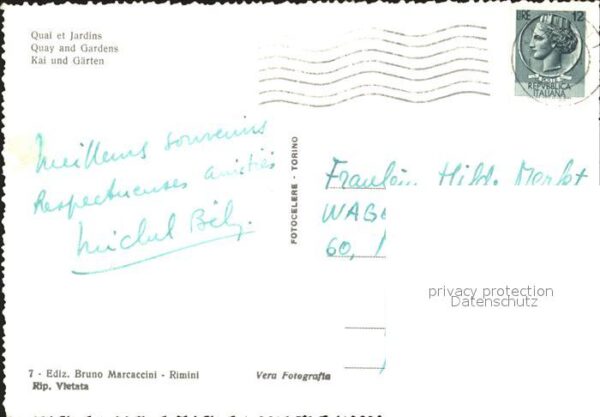 Quai et Jardins
Quay and Gardens
Kai und Gärten
LIRE 12
REPVBBLICA
ITALIANA
Meilleurs souvenirs
Respectueuses amitiés
Michel
FOTOCELERE - TORINO
Fraulein Hild. Merkt
WAG
60,
privacy protection
Datenschutz
7 - Ediz. Bruno Marcaccini - Rimini
Rip. Vietata
Vera Fotografia